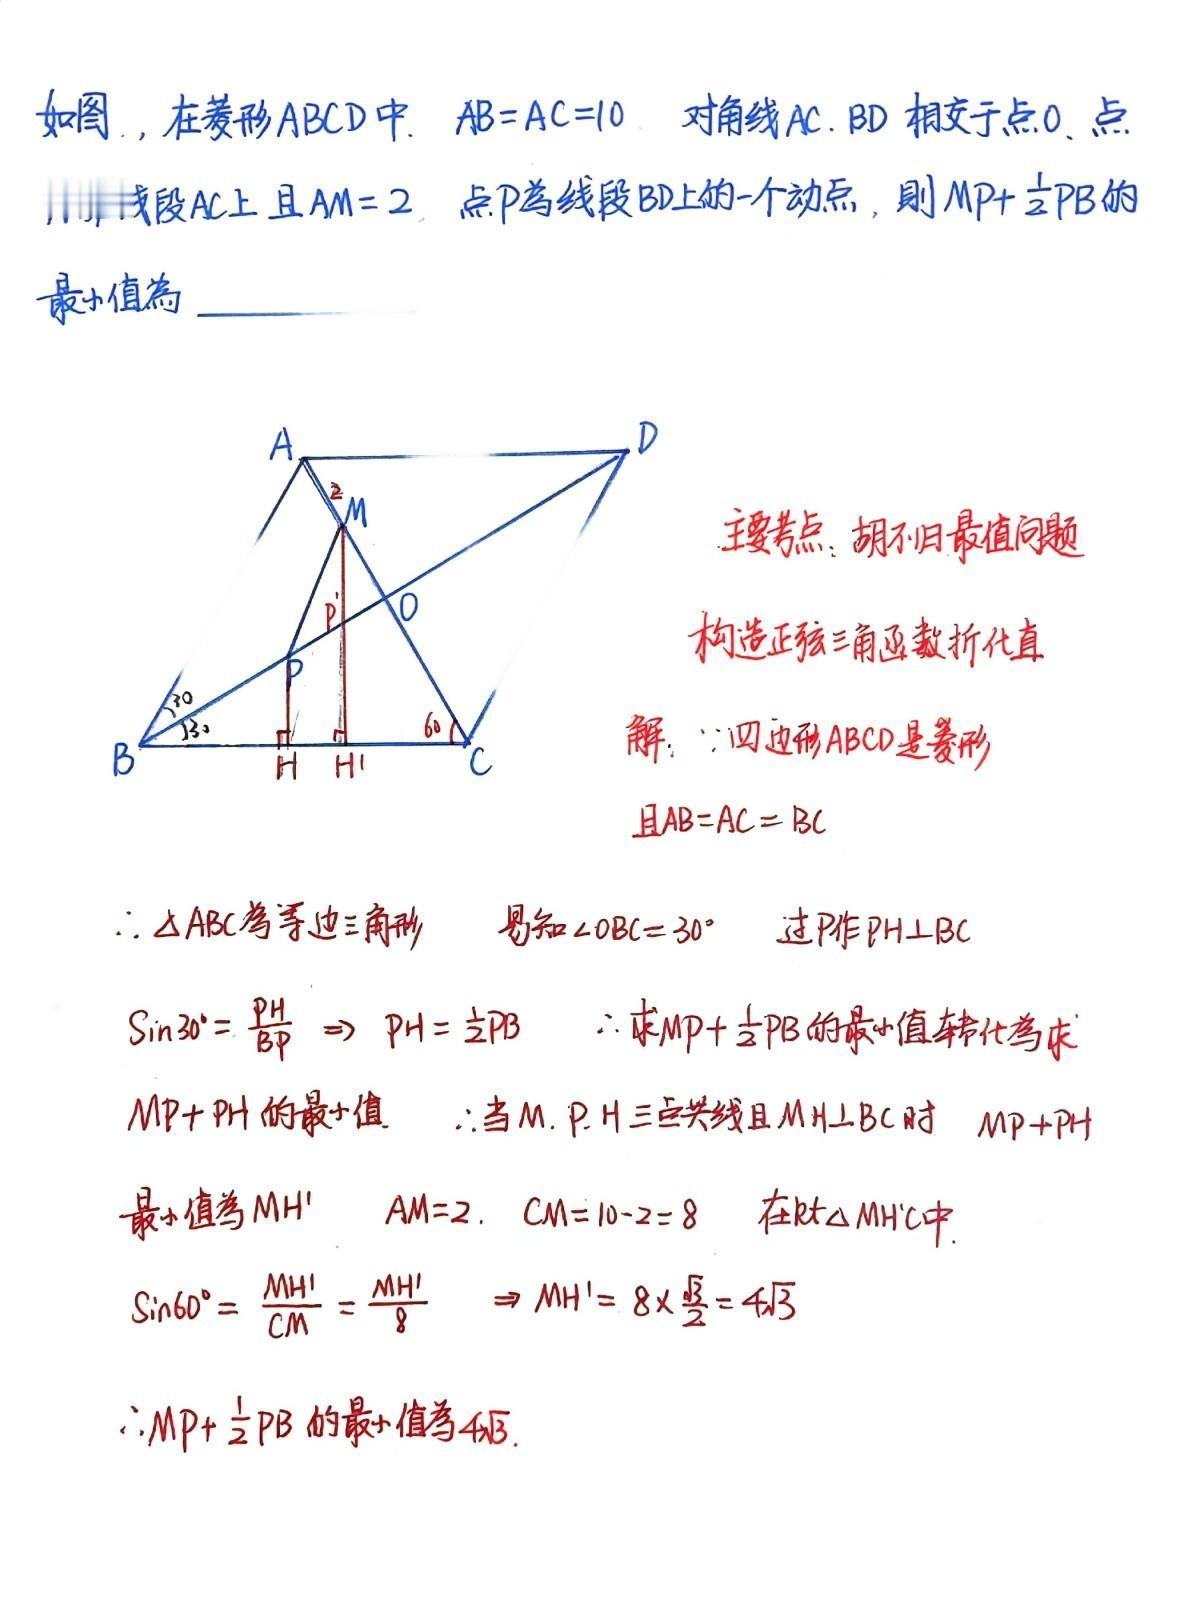 如图.,在菱形ABCD中. AB=AC=10 对角线AC.BD 相交于点O、点
线段AC上 且AM=2, 点P為线段BD上的一个动点,則MP+½PB的
最小值為
A
D
2
M
P'
O
P
30
30
60
B
H
H'
C
主要考点:胡不归最值问题
构造正弦三角函数折化直
解:∵四边形ABCD是菱形
且AB=AC=BC
∴△ABC為等边三角形 易知∠OBC=30° 过P作PH⊥BC
Sin30°=PH/BP ⇒ PH=½PB ∴求MP+½PB的最小值转化為求
MP+PH的最小值 ∴当M.P.H三点共线且MH⊥BC时 MP+PH
最小值為MH' AM=2. CM=10-2=8 在Rt△MH'C中.
Sin60°=MH'/CM=MH'/8 ⇒MH'=8×√3/2=4√3
∴MP+½PB的最小值為4√3.